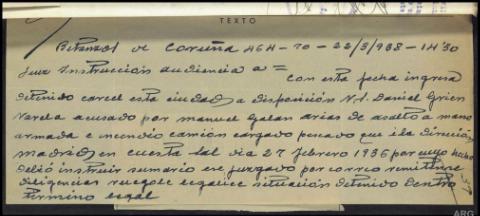 TEXTO
Betanzos de Coruña 464-70-22/3/938-14'30
Juez Instruccion audiencia a = con esta fecha ingresa
detenido carcel esta ciudad a disposición N.I. Daniel
Varela acusado por manuel Galan arias de asalto a mano
armada e incendio camión cargado pescado que iba dirección
madrid en cuesta Sal dia 27 febrero 1936 por cuyo hecho
debió instruir sumario ese juzgado por correo remitense
diligencias ruegole legalice situación detenido dentro
termino legal
ARG